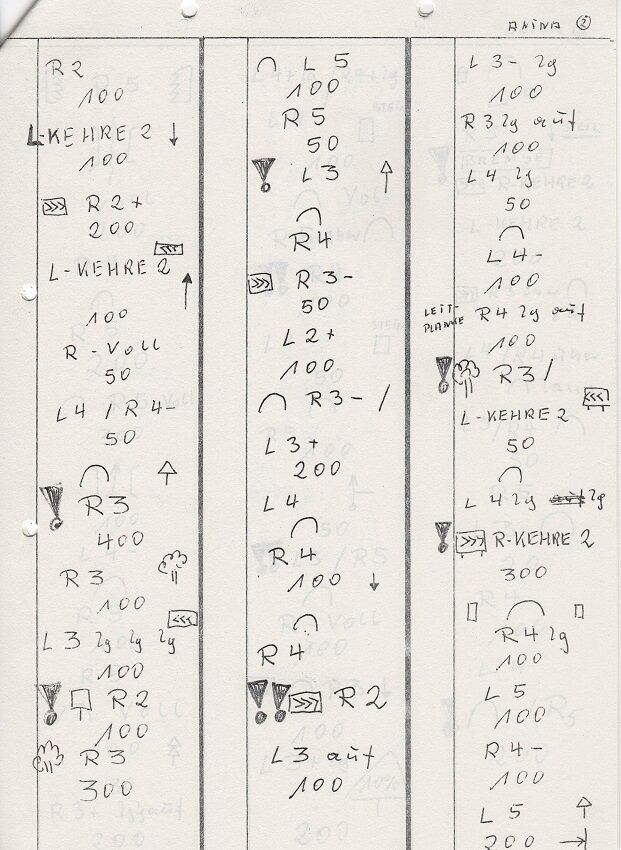 ANINA 2
R 2
100
L-KEHRE 2 ↓
100
>>> R 2+
200
>>>
L-KEHRE 2
↑
100
R-Voll
50
L4 / R4-
50
↑
! R3
400
R 3
100
<<<
L 3 lg lg lg
100
! R2
100
R3
300
L 5
100
R 5
50
! L3 ↑
R4
>>> R 3-
50
L2+
100
R3- /
L3+
200
L4
R4
100 ↓
R4
!! >>> R2
L3 auf
100
L 3- lg
100
R3 lg auf
100
L4 lg
50
L4-
100
LEIT-
PLANKE R4 lg auf
100
! R3/
<<<
L-KEHRE 2
50
L 4 lg lg
! >>> R-KEHRE 2
300
R4 lg
100
L 5
100
R4-
100
L 5 ↑
200 →